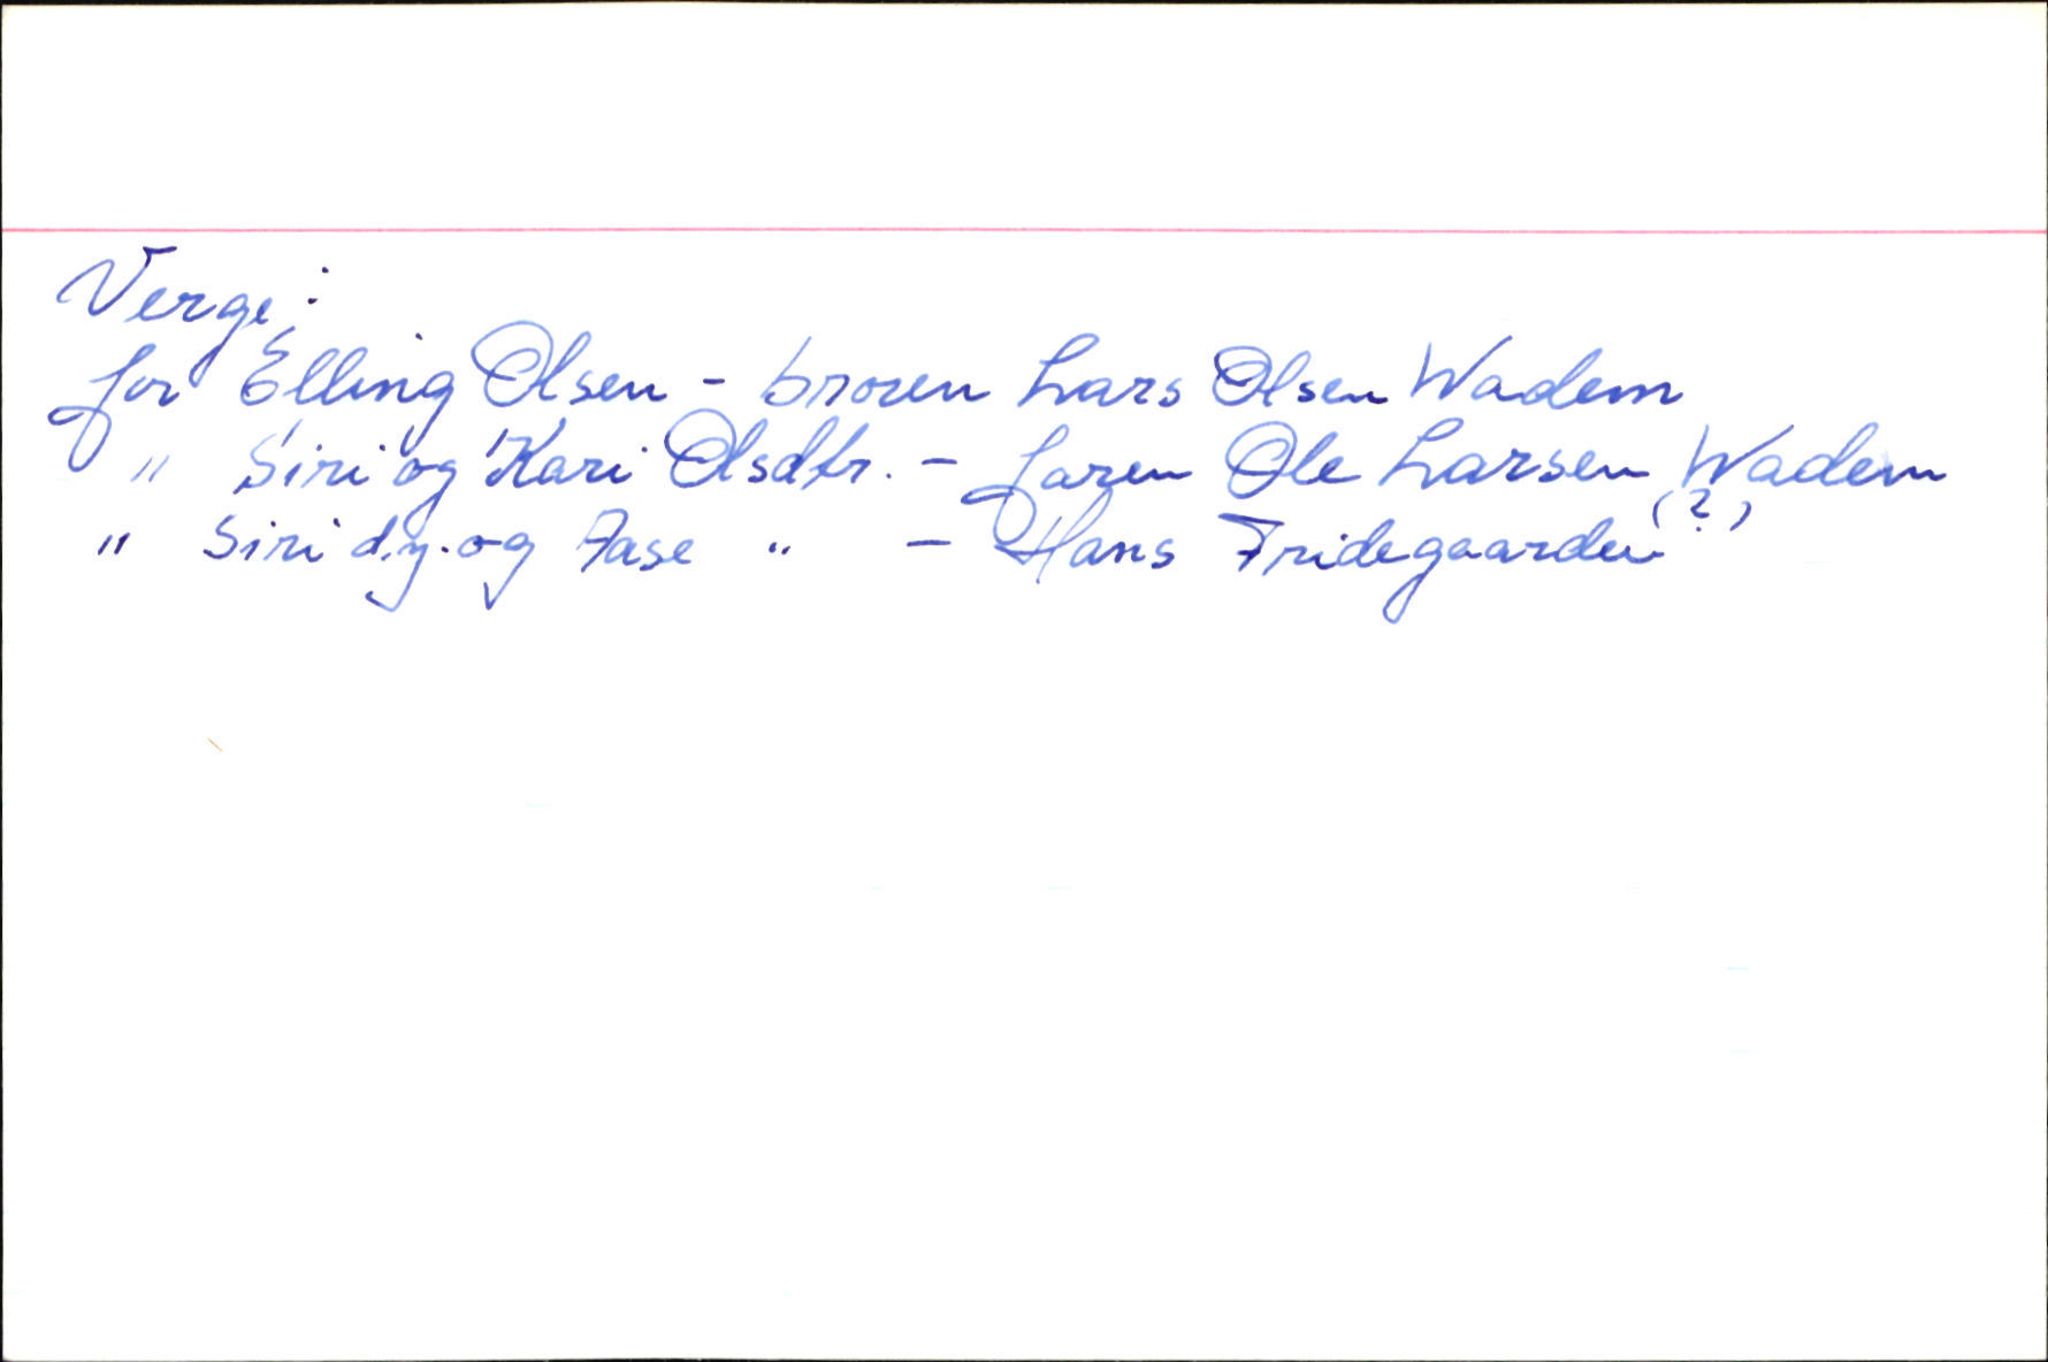 Verge:
for Elling Olsen - broren Lars Olsen Wadem
" Siri og Kari Olsdtr. - faren Ole Larsen Wadem
" Siri d.y. og Aase " - Hans Fridegaarden (?)